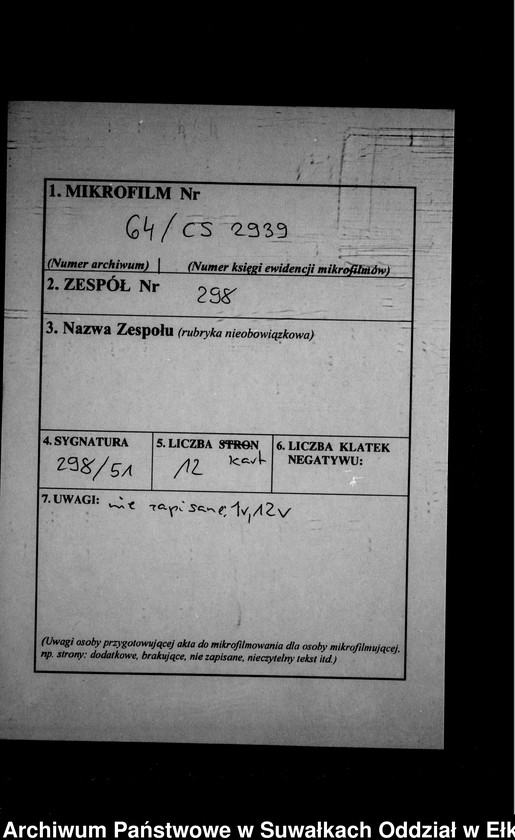 1. MIKROFILM Nr
64/CS 2939
(Numer archiwum) (Numer księgi ewidencji mikrofilmów)
2. ZESPÓŁ Nr
298
3. Nazwa Zespołu (rubryka nieobowiązkowa)
4. SYGNATURA
298/51
5. LICZBA STRON
kart
12
6. LICZBA KLATEK
NEGATYWU:
7. UWAGI: nie zapisane: 1v, 12v
(Uwagi osoby przygotowującej akta do mikrofilmowania dla osoby mikrofilmującej.
np. strony: dodatkowe, brakujące, nie zapisane, nieczytelny tekst itd.)
Archiwum Państwowe w Suwałkach Oddział w Ełk